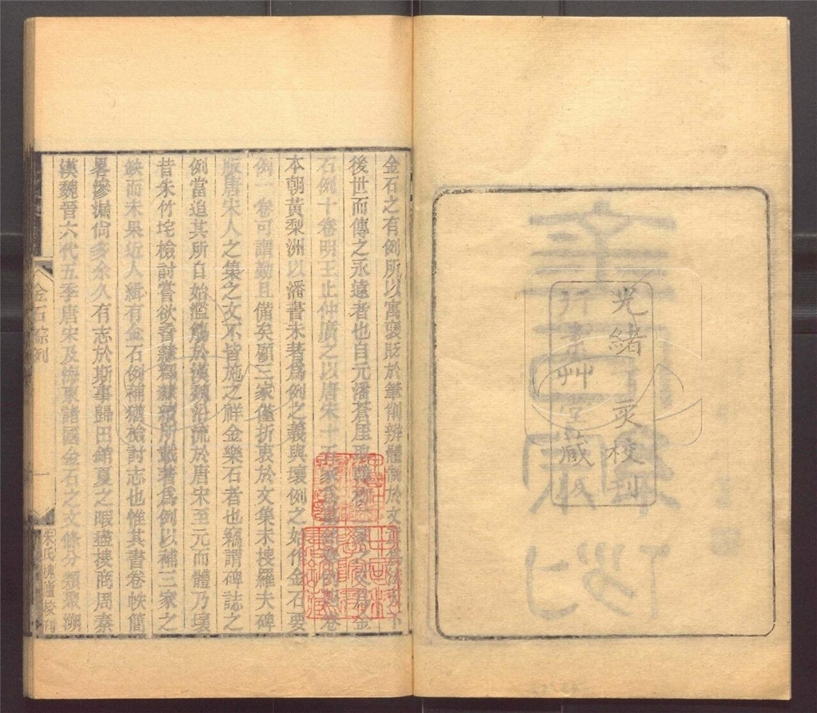 光緒
校刊
行素艸堂藏
金石之有例所以寓襃貶於筆削辨體製於文
後世而傳之永遠者也自元潘蒼厓
石例十卷明王止仲廣之以唐宋十五家
本朝黃梨洲以潘書未著爲例之義與壞例之始作金石要
例一卷可謂勤且備矣顧三家僅折衷於文集未摟羅夫碑
版唐宋人之集之文不皆施之祥金樂石者也竊謂碑誌之
例當追其所自始濫觴於漢魏沿流於唐宋至元而體乃壞
昔朱竹垞檢討嘗欲
所載著爲例以補三家之
缺而未果近人緝有金石例補猶檢討志也惟其書卷帙簡
畧滲漏尚多余久有志於斯事歸田銷夏之暇
商周秦
漢魏晉六代五季唐宋及海東諸國金石之文條分類聚溯
金石綜例
一
朱氏槐廬校刊